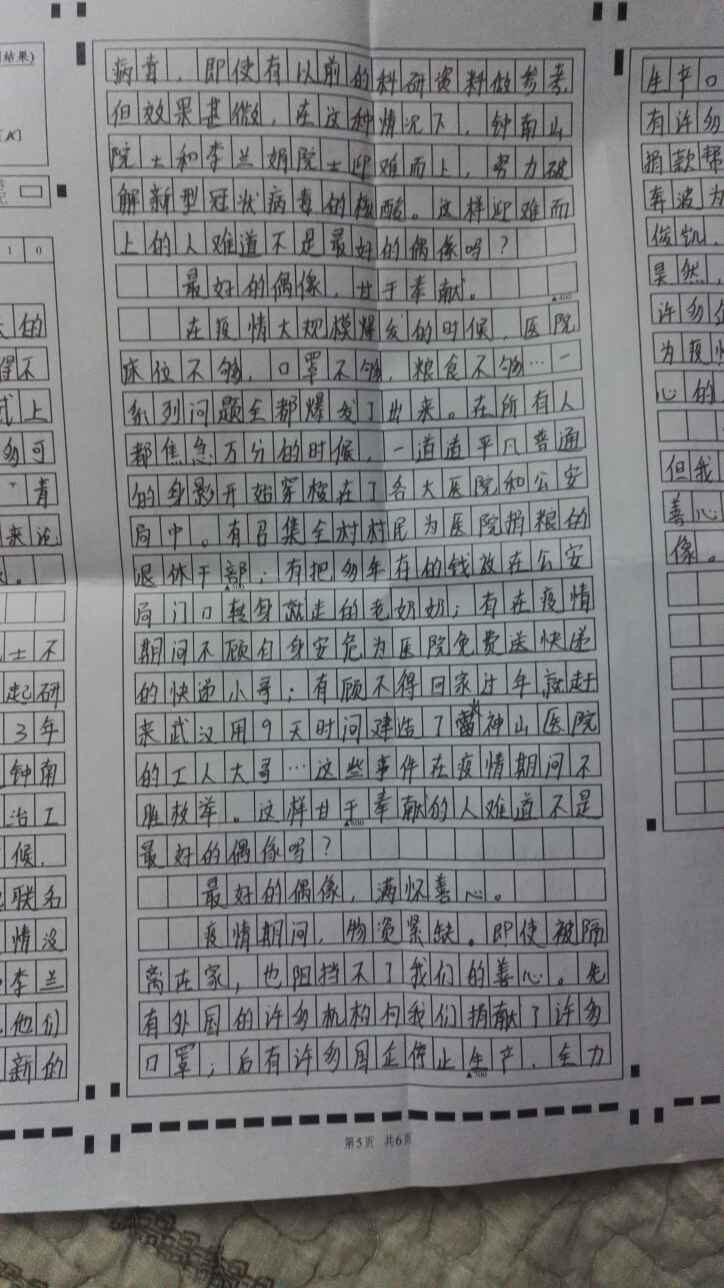 结果)
1 0
病毒，即使有以前的科研资料做参考，
但效果甚微，在这种情况下，钟南山
院士和李兰娟院士迎难而上，努力破
解新型冠状病毒的核酸。这样迎难而
上的人难道不是最好的偶像吗？
最好的偶像，甘于奉献。
▲400
在疫情大规模爆发的时候，医院
床位不够，口罩不够，粮食不够…一
系列问题全都爆发了出来。在所有人
都焦急万分的时候，一道道平凡普通
的身影开始穿梭在了各大医院和公安
局中。有召集全村村民为医院捐粮的
退休干部；有把多年存的钱放在公安
局门口转身就走的老奶奶；有在疫情
期间不顾自身安危为医院免费送快递
的快递小哥；有顾不得回家过年就赶
来武汉用9天时间建造了雷神山医院
的工人大哥…这些事件在疫情期间不
胜枚举。这样甘于奉献的人难道不是
最好的偶像吗？
最好的偶像，满怀善心。
疫情期间，物资紧缺。即使被隔
离在家，也阻挡不了我们的善心。先
有外国的许多机构向我们捐献了许多
口罩；后有许多国企停止生产，全力
▲700
第5页 共6页
的
得不
式上
多可
青
来说
士不
起研
3年
钟南
治工
候，
联名
情没
李兰
他们
新的
生产口
有许多
捐款帮
奔波为
俊凯、
昊然，
许多
为疫情
心的
但我
善心
像。